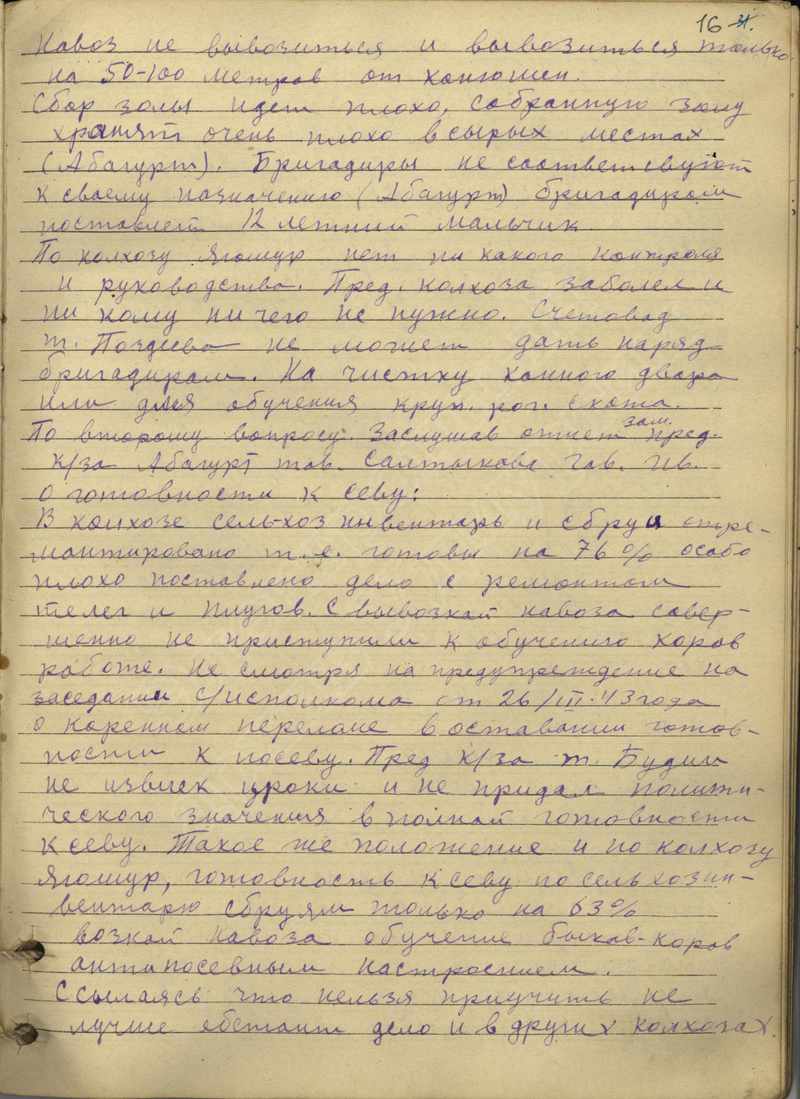 16 31.
Навоз не вывозиться и вывозиться только
на 50-100 метров от конюшен.
Сбор золы идет плохо, собранную золу
хранят очень плохо в сырых местах
(Абагурт). Бригадиры не соответсвуют
к своему назначению (Абагурт) бригадиром
поставлен 12 летний мальчик
По колхозу Ягошур нет ни какого контроля
и руководства. Пред. колхоза заболел и
ни кому ни чего не нужно. Счетовод
т. Поздеева не может дать наряд
бригадирам. На чистку конного двора
или для обучения круп. рог. скота.
По второму вопросу. Заслушав отчет зам. пред.
к/за Абагурт тов. Салтыкова Гав. Ив.
о готовности к севу:
В колхозе сель-хоз инвентарь и сбруи отре-
монтировано т.е. готовы на 76% особо
плохо поставлено дело с ремонтом
телег и плугов. С вывозкой навоза совер-
шенно не приступили к обучению коров
работе. Не смотря на предупреждение на
заседании с/исполкома от 26/III-43 года
о коренном переломе в оставании готов-
ности к посеву. Пред к/за т. Будин
не извлек уроки и не придал полити-
ческого значения в полной готовности
к севу. Такое же положение и по колхозу
Ягошур, готовность к севу по сельхозин-
вентарю сбруям только на 63%
возкой навоза обучение быков-коров
антипосевным настроением.
Ссылаясь что нельзя приучить не
лучше обстоит дело и в других колхозах